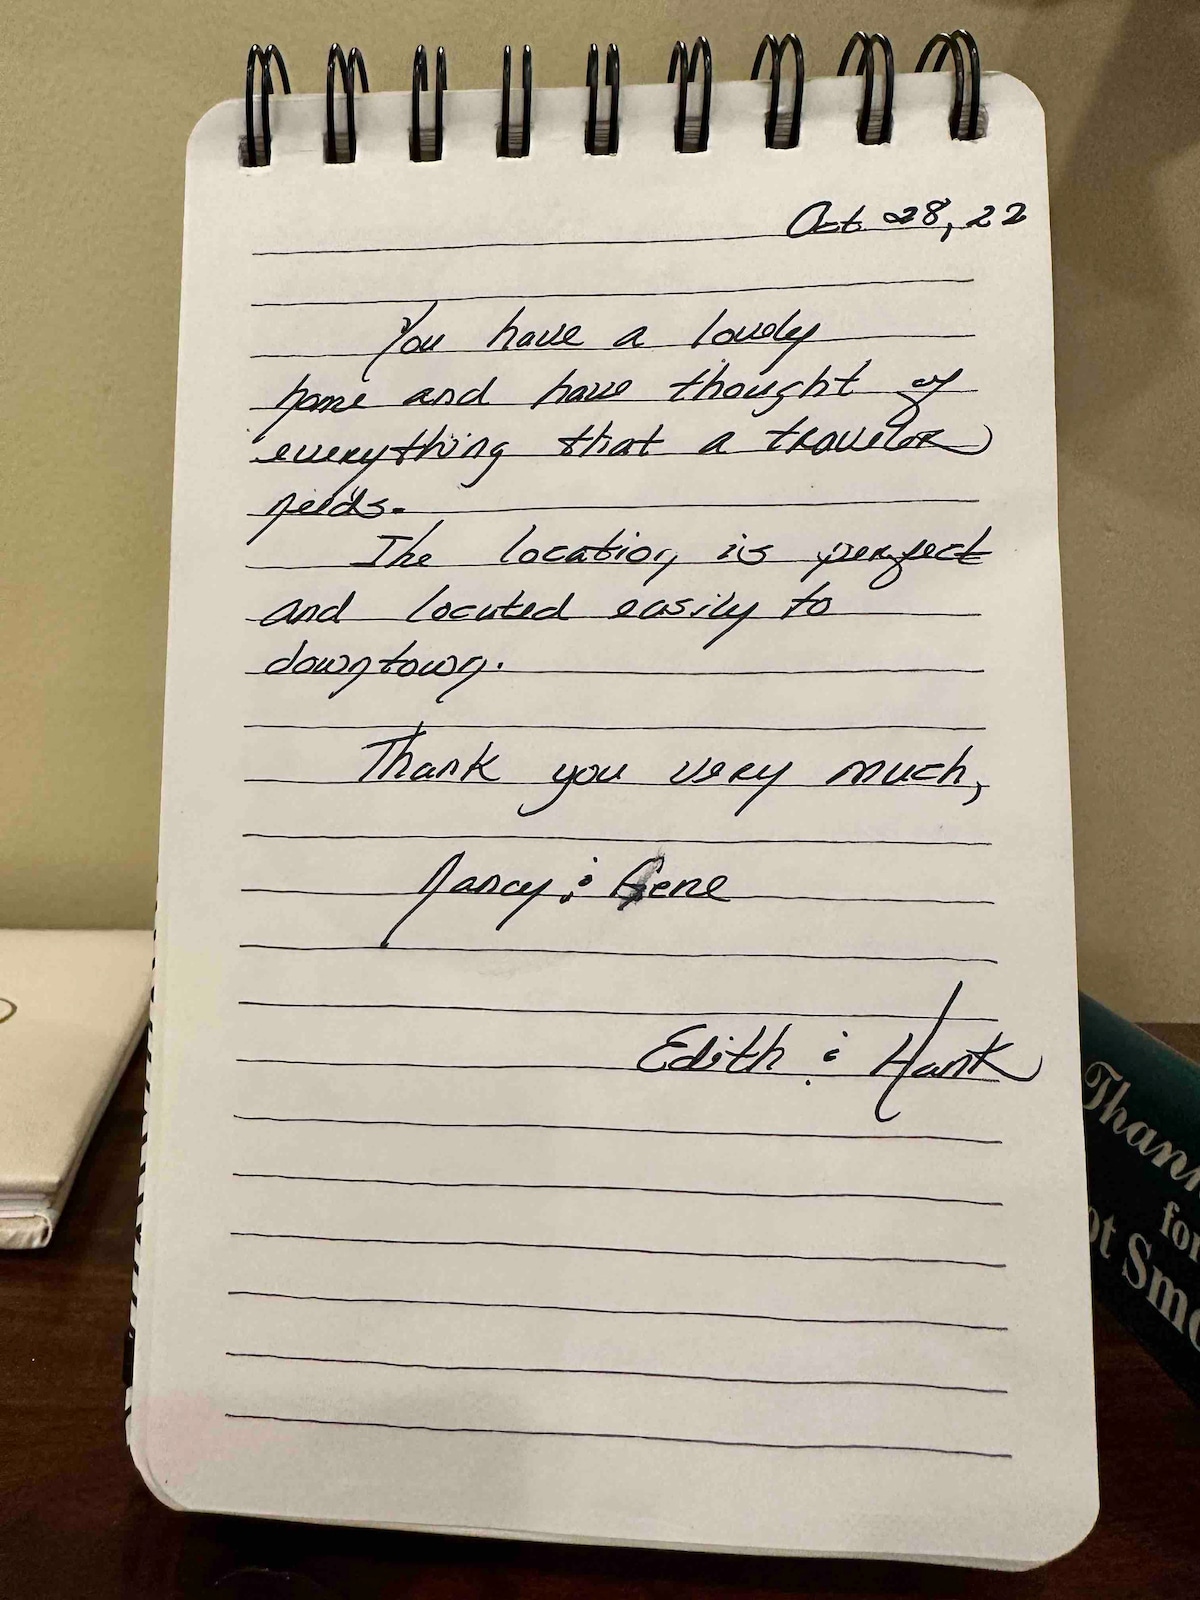 Oct. 28, 22
You have a lovely
home and have thought of
everything that a traveler
needs.
The location is perfect
and located easily to
downtown.
Thank you very much,
Nancy & Gene
Edith & Hank
Thank
for
ot Smo